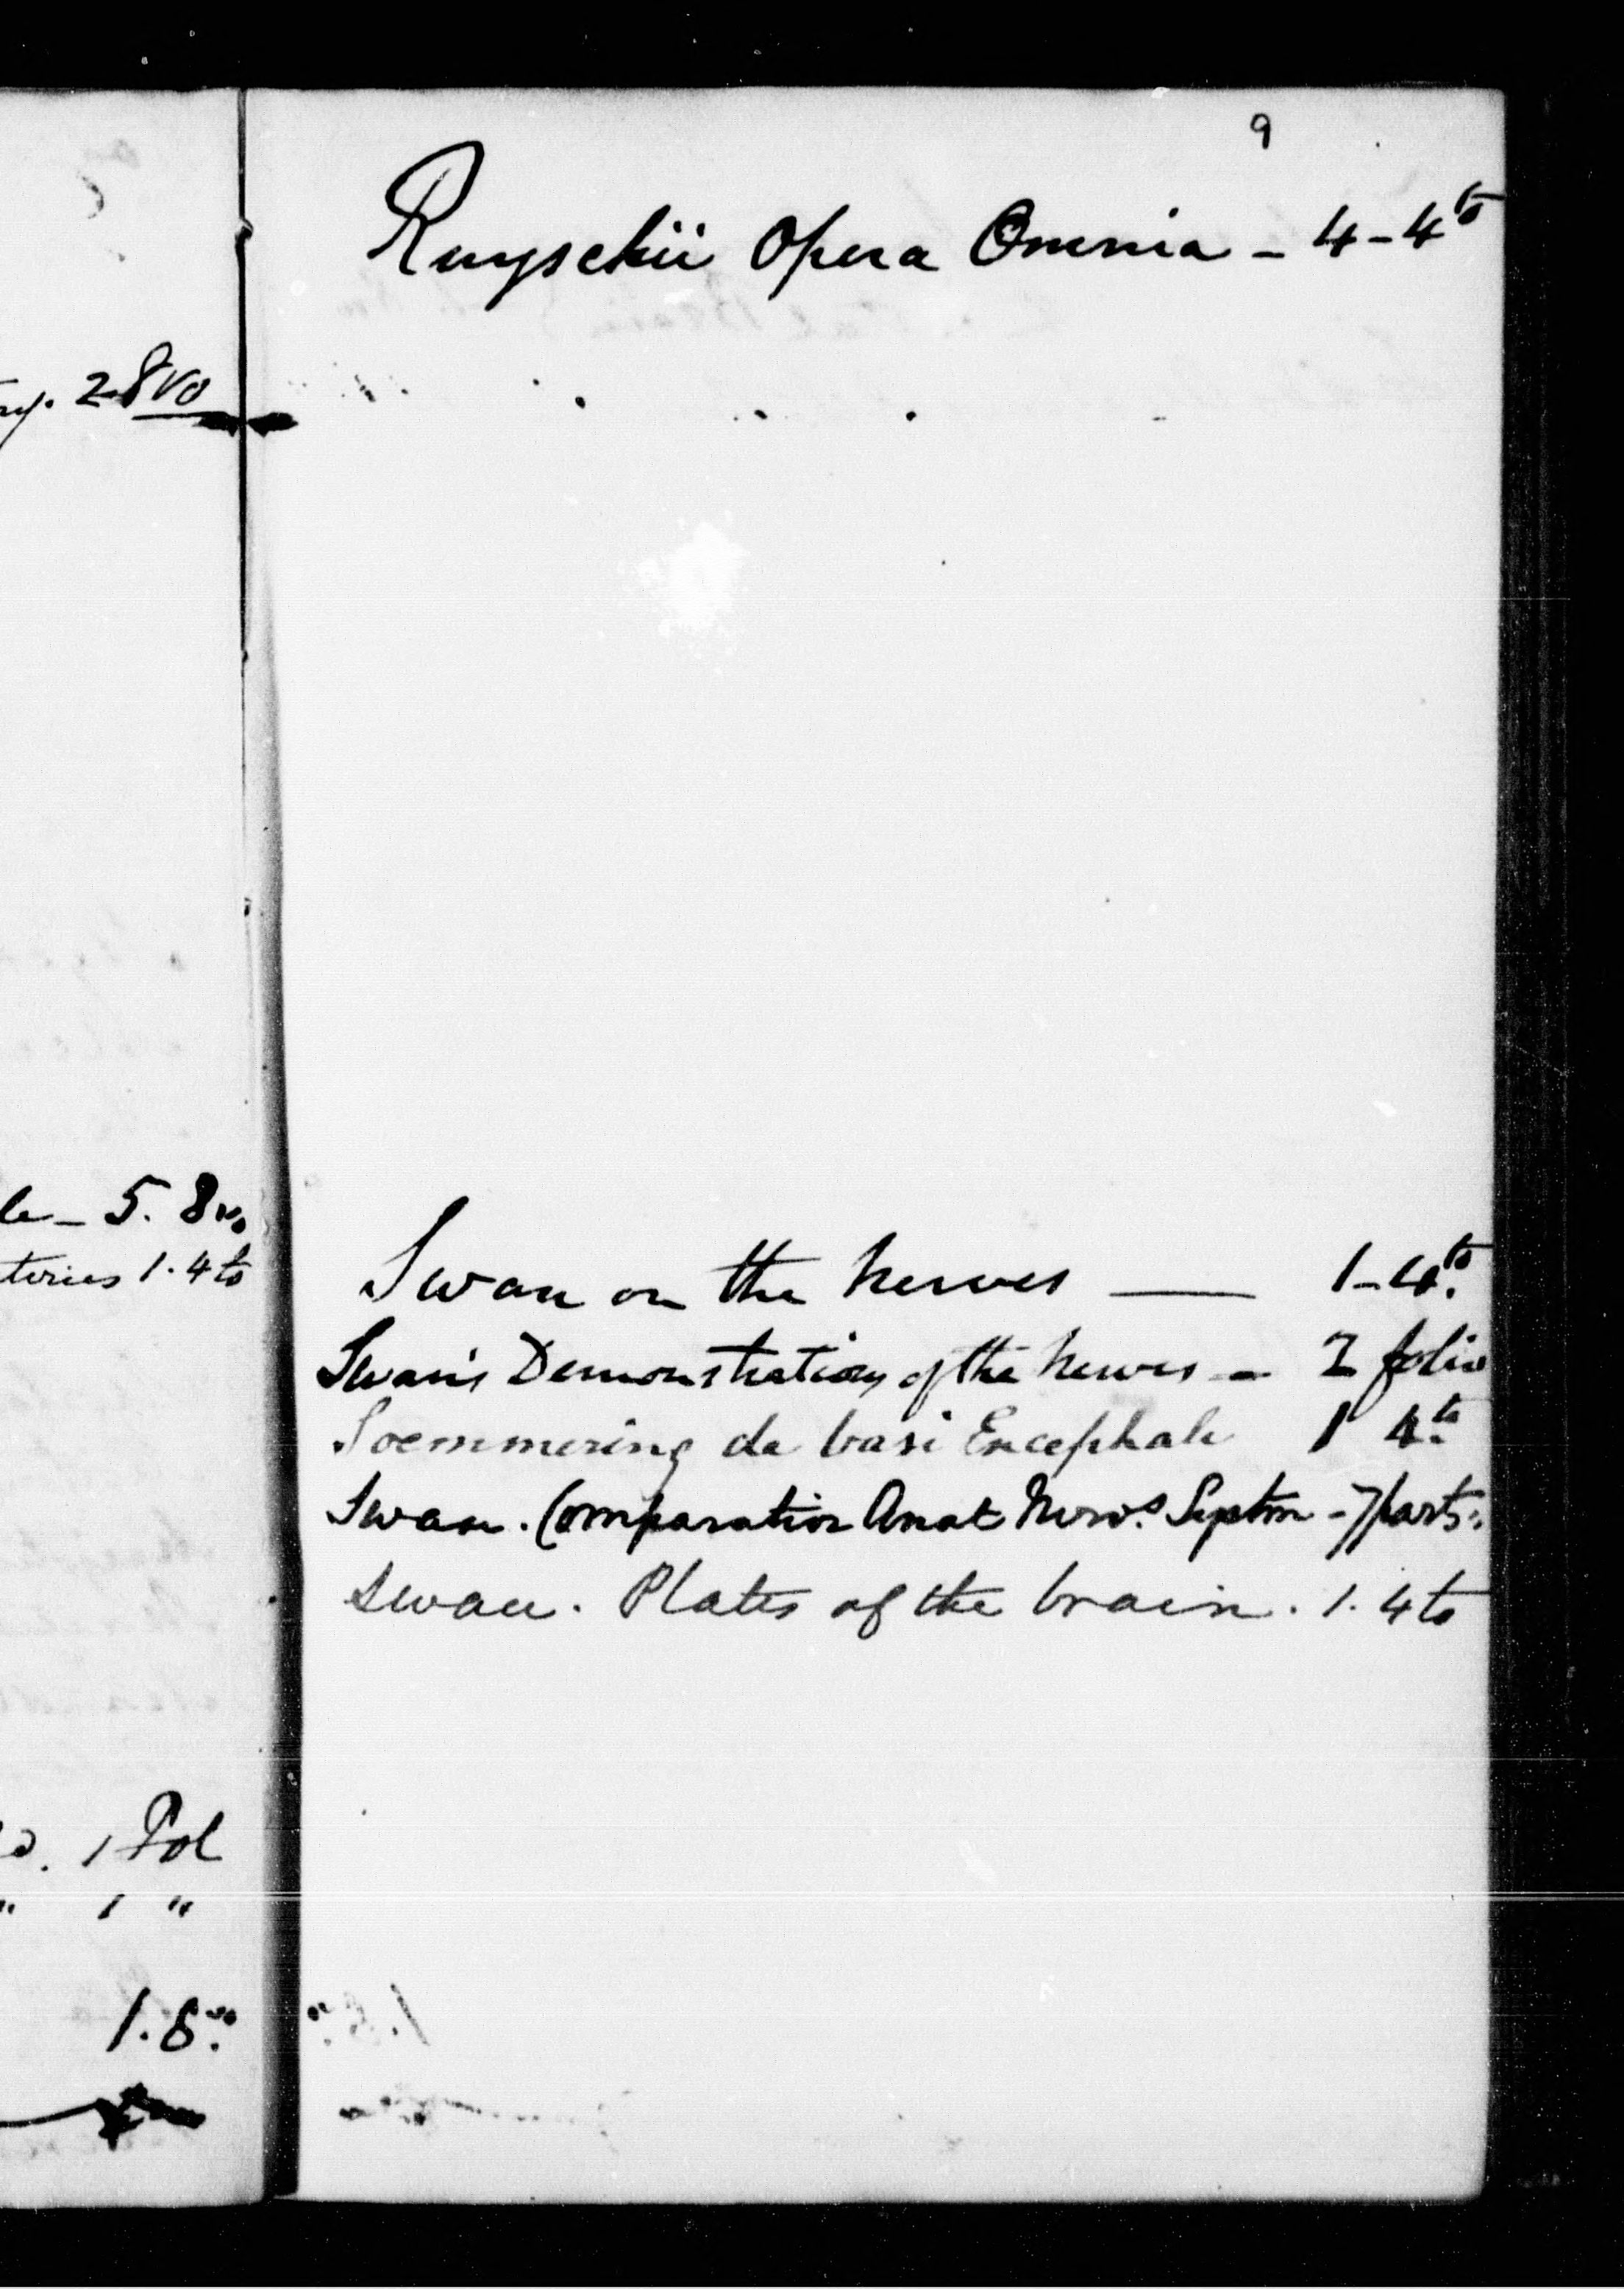 2-8vo
5. 8vo
teries 1. 4to
1 Fol
" 1 "
1. 8vo.
9
Ruyschii Opera Omnia - 4-4to
Swan on the nerves — 1-4to.
Swan's Demonstrations of the nerves - 2 folio
Soemmering de basi Encephali 1 4to
Swan. Comparative Anat Nervs. System - 7 parts.
Swan. Plates of the brain. 1. 4to